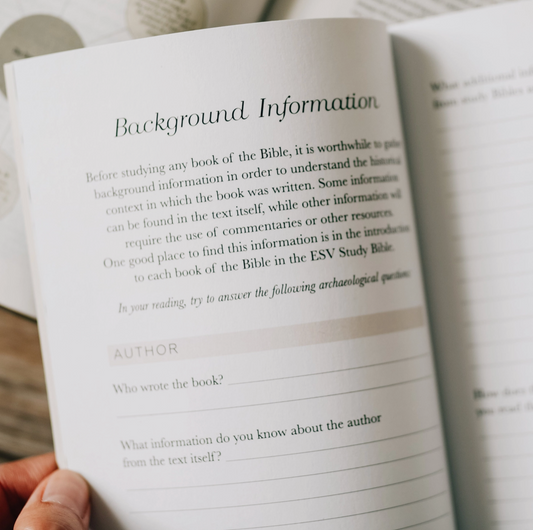 Background Information
Before studying any book of the Bible, it is worthwhile to gather
background information in order to understand the historical
context in which the book was written. Some information
can be found in the text itself, while other information will
require the use of commentaries or other resources.
One good place to find this information is in the introduction
to each book of the Bible in the ESV Study Bible.
In your reading, try to answer the following archaeological questions:
AUTHOR
Who wrote the book?
What information do you know about the author
from the text itself?
What additional
from study Bibles
How does
you read